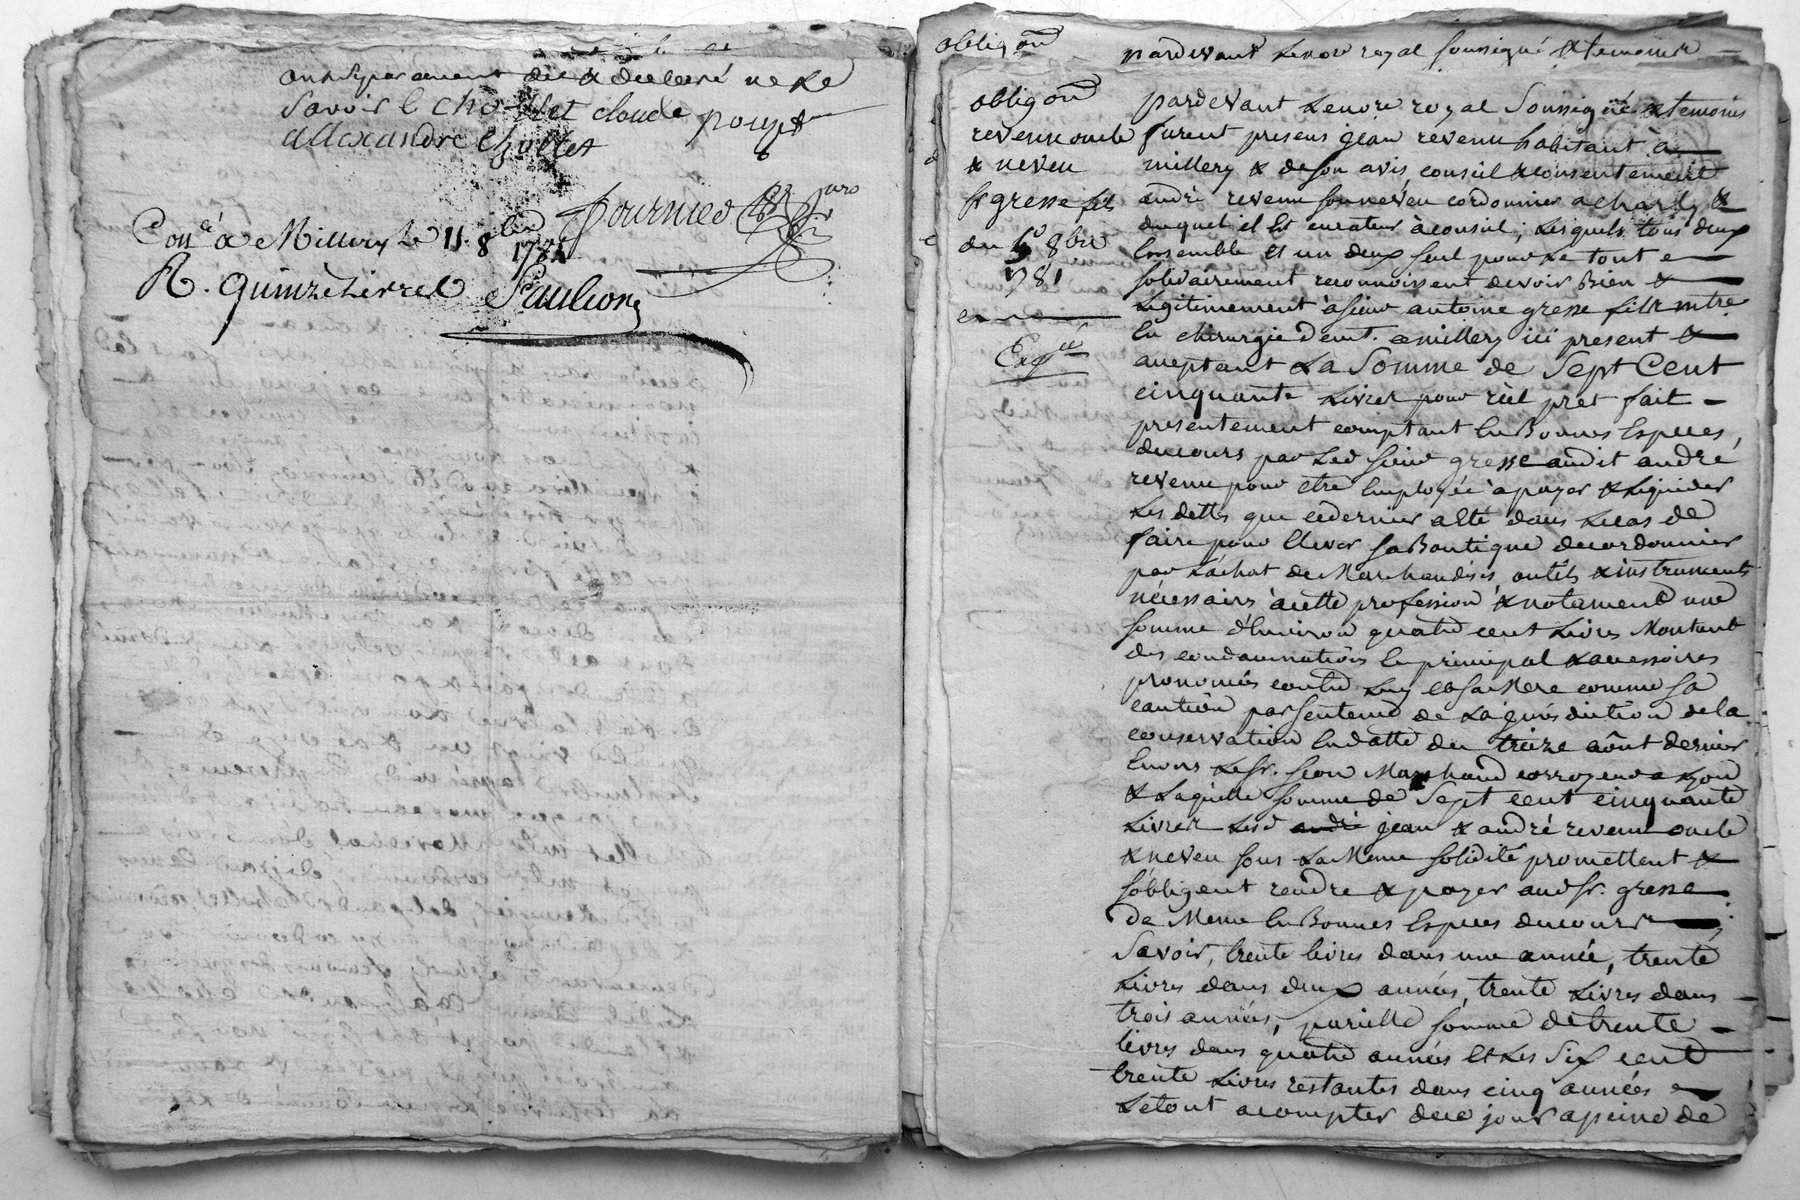 ont separement dit & declaré ne le
Savoir
chollet claude pouget
allexandre Chollet
fournier
Con.lé a Millery le 11. 8bre 1781
R. quinze livres Paulion
obligon
pardevant Le nore royal soussigné & temoins
obligon
revenu oncle
& neveu
sr gresse fils
du 8bre
1781
Expié
pardevant Le nore royal Soussigné & temoins
furent presens jean revenu habitant à
millery & de son avis conseil & consentement
andré revenu son neveu cordonnier a charly &
duquel il est curateur à conseil, Lesquels tous deux
Ensemble et un deux seul pour le tout
solidairement reconnoissent devoir Bien &
Legitimement à sieur antoine gresse fils mtre
En chirurgie demt. a millery ici present &
acceptant La Somme de Sept Cent
cinquante Livres pour réel pret fait
presentement comptant En Bonnes Especes
du cours par Led sieur gresse audit andré
revenu pour etre Employée à payer & Liquider
Les dettes que ce dernier a Eté dans Le cas de
faire pour Elever sa Boutique de cordonnier
par Lachat de Marchandises, outils & instruments
nécessaires à cette profession & notament une
somme d'Environ quatre cent Livres Montant
des condamnations En principal & accessoires
prononcées contre Luy et sa Mere comme sa
caution par sentence de La jurisdiction de la
conservation En datte du treize août dernier
Envers Le sr. jean Marchand corroyeur a Lyon
& Laquelle somme de Sept cent cinquante
Livres Lesd andré jean & andré revenu oncle
& neveu sous La Meme solidité promettent &
s'obligent rendre & payer aud sr. gresse
de Meme En Bonnes Especes du cours
Savoir, trente livres dans une année, trente
Livres dans deux années, trente Livres dans
trois années, pareille somme de trente
livres dans quatre années Et Les Six cent
trente Livres restantes dans cinq années
Le tout a compter de ce jour a peine de